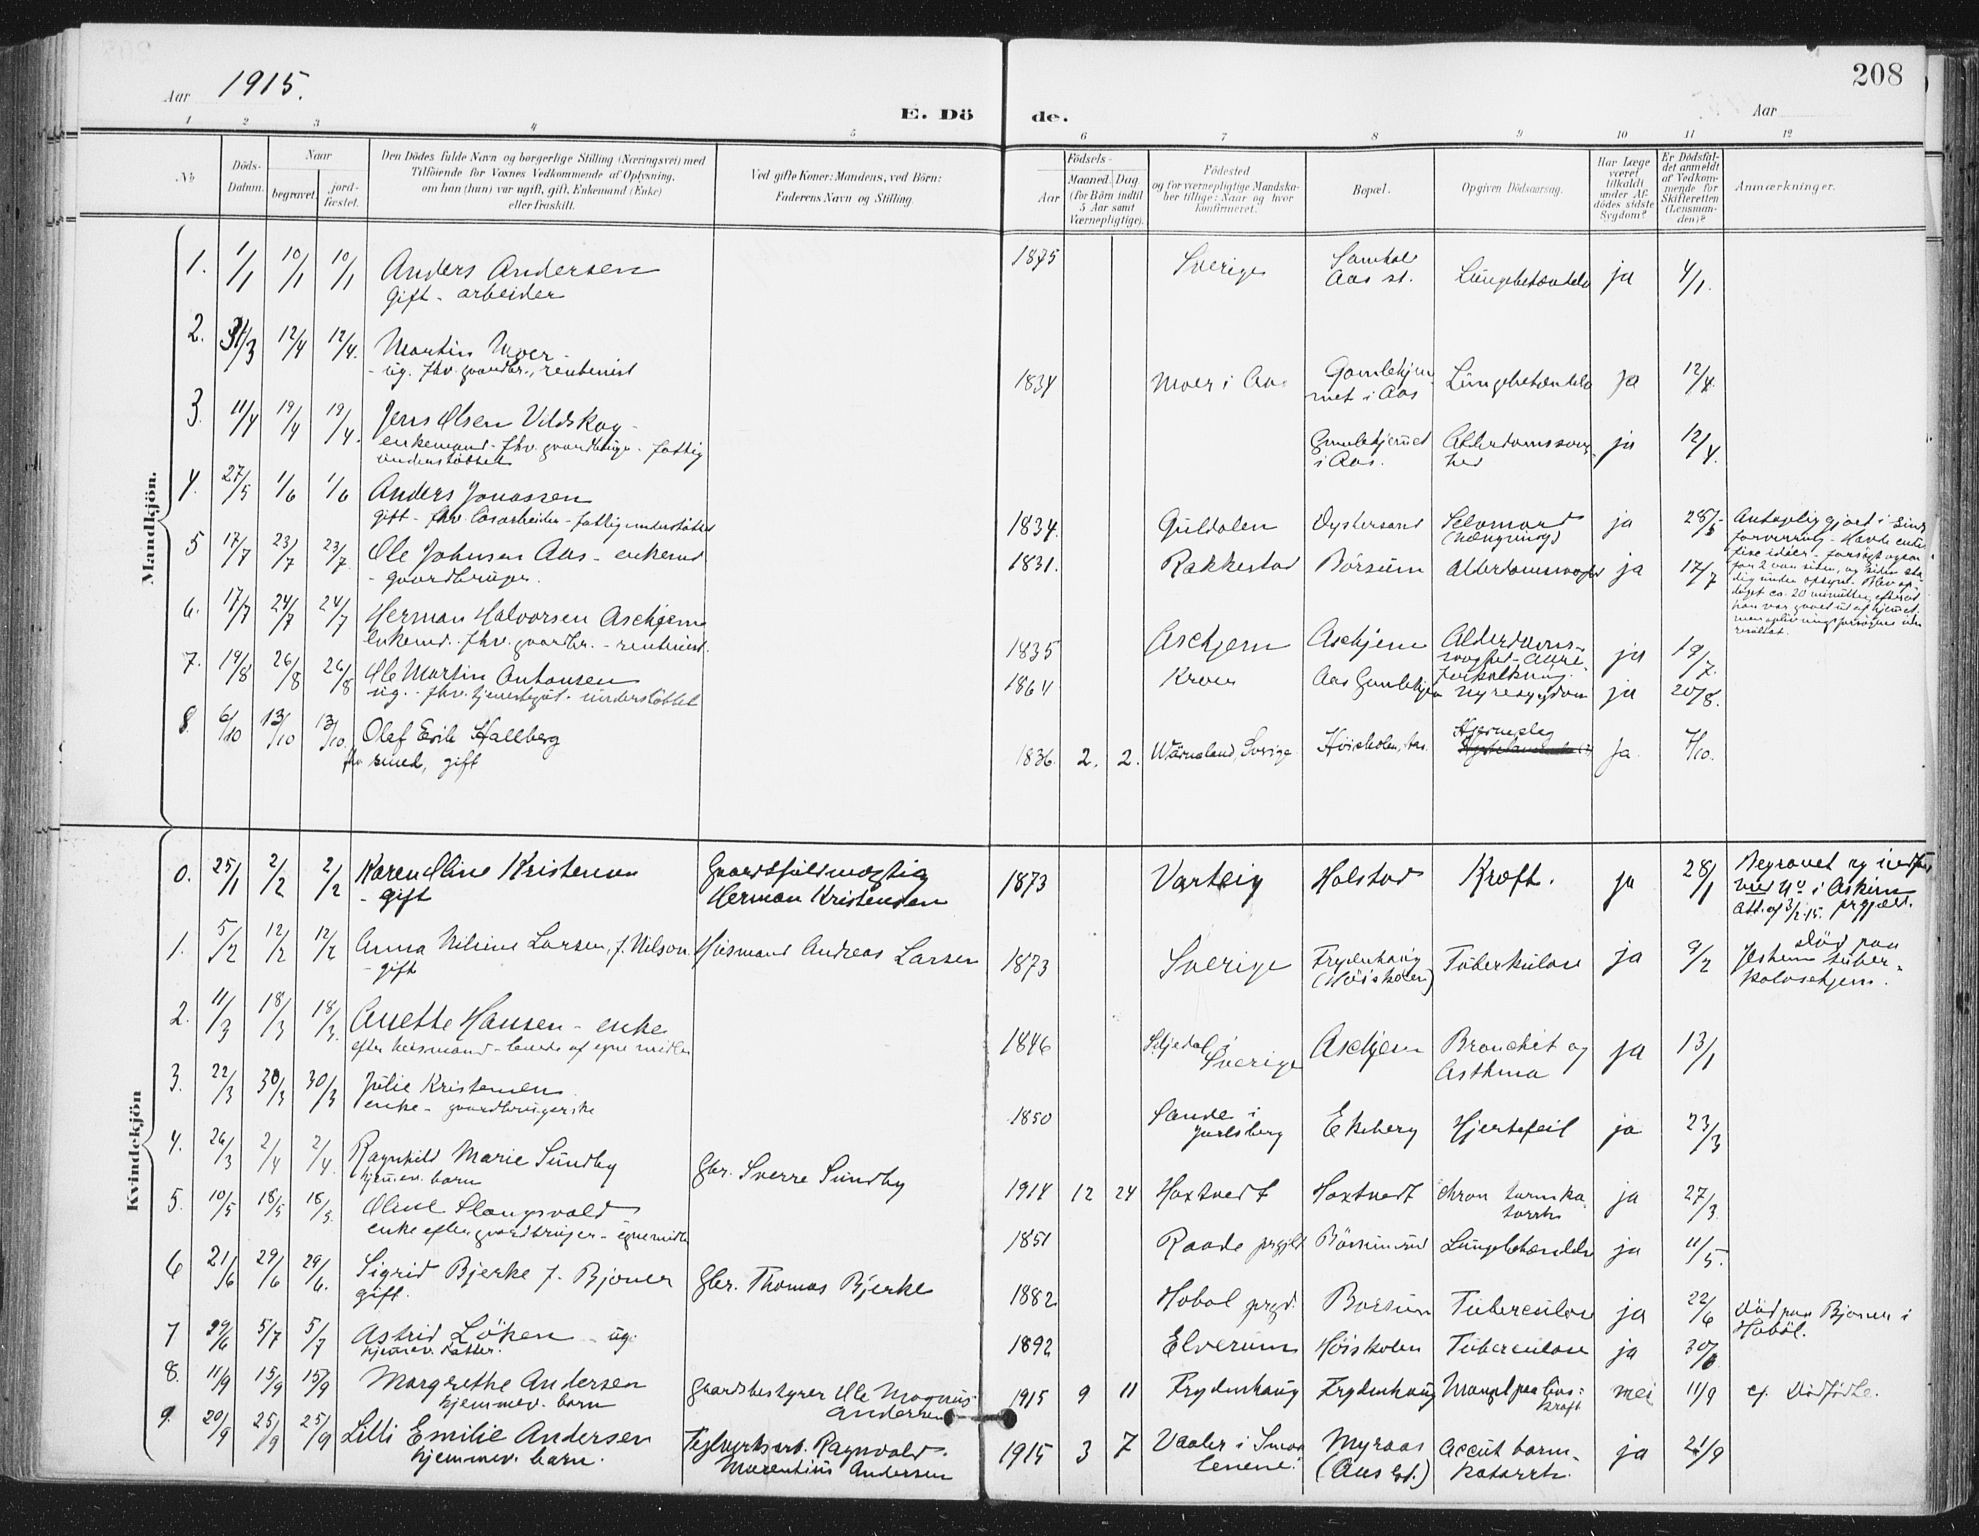 208
Aar 1915.
E. Dö de.
Aar
1 2 3 4 5 6 7 8 9 10 11 12
No
Döds-Datum.
Naar
begravet.
jord-fæstet.
Den Dödes fulde Navn og borgerlige Stilling (Næringsvei) med
Tilföiende for Voxnes Vedkommende af Oplysning,
om han (hun) var ugift, gift, Enkemand (Enke)
eller fraskilt.
Ved gifte Koner: Mandens, ved Börn:
Faderens Navn og Stilling.
Födsels-
Aar
Maaned Dag
(for Börn indtil
5 Aar samt
Værnepligtige).
Födested
og for værnepligtige Mandska-
ber tillige: Naar og hvor
konfirmeret.
Bopæl.
Opgiven Dödsaarsag.
Har Læge
været
tilkaldt
under Af-
dödes sidste
Sygdom?
Er Dödsfal-
det anmeldt
af Vedkom-
mende for
Skifteretten
(Lensman-
den)?
Anmærkninger.
Mandkjön.
1. 1/1 10/1 10/1 Anders Andersen 1875 Sverige Aas st. Lungebetændelse ja 4/1.
gift - arbeider
2. 31/3 12/4 12/4. Martin Moer -
- ug. fhv. gaardbr., rentenist 1834 Moer i Aas Gamlehjem-
met i Aas Lungebetændelse ja 12/4.
3. 11/4 19/4 19/4. Jens Olsen Vildskog -
enkemand - fhv. gaardbruger - fattig
understöttet Gamlehjemmet
i Aas. Alderdomssvag-
hed ja 12/4.
4. 27/5 1/6 1/6 Anders Jonassen
gift - fhv. löSarbeider - fattigunderstöttet 1834. Guldalen Dystersand Selvmord
(hængning) ja 28/5 Antagelig gjort i sinds-
forvirring - Havde
fixe idéer - forsögt ogsaa
for 2 aar siden, og siden sta-
dig under opsyn. Blev op-
daget ca. 20 minutter efterat
han var gaaet ud af hjemmet,
men oplivningsforsögene uden
resultat.
5 17/7 23/7 23/7. Ole Johnsen Aas - enkemd
- gaardbruger. 1831. Rakkestad Börsum Alderdomssvaghed ja 17/7
6. 17/7 24/7 24/7 Herman Halvorsen Aschjem
enkemd. fhv. gaardbr. - rentenist. 1835 Aschjem Aschjem Alderdoms-
svaghet - Aare-
forkalkning. ja 19/7.
7. 19/8 26/8 26/8 Ole Martin Antonsen
ug. - fhv. tjenestegut - understöttet 1864 Kroer Aas Gamlehjem Nyresygdom ja 20/8.
8. 6/10 13/10 13/10. Olaf Erik Hallberg
fhv. smed, gift 1836 2. 2. Wärmeland, Sverige Höiskolen, Aas. Hjerneslag ja. 7/10.
Kvindekjön
0. 25/1 2/2 2/2 Karen Oline Kristensen
- gift Gaardsfuldmægtig
Herman Kristensen 1873 Varteig Holstad Kræft. ja 28/1 Begravet og indfört
under No i Askim
Att. af 3/2.15. prgjæld.
1. 5/2 12/2 12/2 Anna Nilsine Larsen, f. Nilson.
- gift Husmand Andreas Larsen 1873 Sverige Frydenhaug
(Höiskolen) Tuberkulose ja 9/2 död paa
Jesheim tuber-
kolosehjem.
2. 11/3 18/3 18/3. Anette Hansen - enke
efter husmand - levede af egne midler 1846 i
Sverige Aschjem Bronchit og
Asthma ja 13/1
3. 22/3 30/3 30/3 Julie Kristensen
enke - gaardbrugerske 1850 Sande i
Jarlsberg Ekeberg Hjertefeil ja 23/3
4. 26/3 2/4 2/4. Ragnhild Marie Sundby
hjemmev. barn Gbr. Sverre Sundby 1914 12 24 Haxtvedt Haxtvedt chron tarmka-
tarrh ja 27/3.
5. 10/5 18/5 18/5. Oline Slangsvold
enke efter gaardbruger - egne midler 1851 Raade prgjld Börsumrud Lungebetændelse ja 11/5.
6 21/6 29/6 29/6. Sigrid Bjerke f. Bjoner
gift. Gbr. Thomas Bjerke 1882 Hobøl prgd. Borsum Tuberculose ja 22/6 Död paa Bjoner i
Hobøl.
7 29/6 5/7 5/7 Astrid Löken - ug.
hjemmev. datter. 1892 Elverum Höiskolen Tuberculose ja 30/6
8. 11/9 15/9 15/9 Margrethe Andersen
hjemmev. barn Gaardsbestyrer Ole Magnus
Andersen 1915 9 11 Frydenhaug Frydenhaug Mangel paa livs-
kraft nei 11/9 cf. Dödfödte.
9. 20/9 25/9 25/9 Lilli Emilie Andersen
hjemmev. barn. Teglverksarb. Ragnvald
Marentius Andersen 1915 3 7 Vaaler i Smaa-
lenene. Myraas
(Aas st.) Accut tarm-
katarrh. ja 21/9